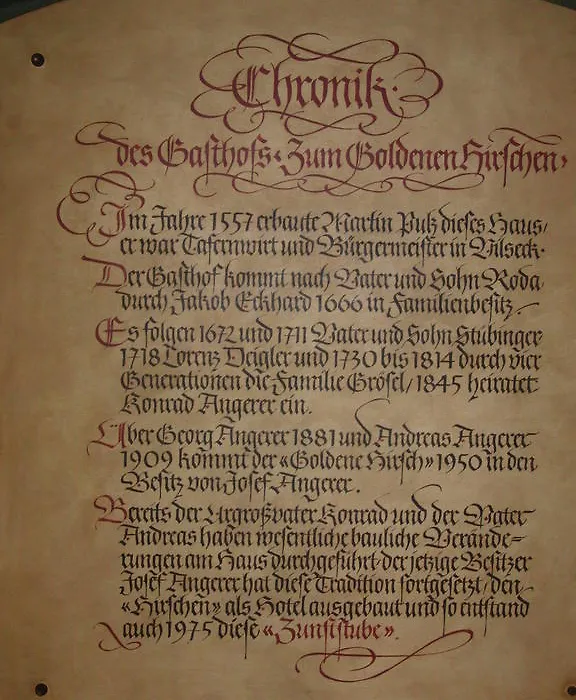 Chronik
des Gasthofs «Zum Goldenen Hirschen»
Im Jahre 1557 erbaute Martin Putz dieses Haus/
er war Tafernwirt und Bürgermeister in Vilseck.
Der Gasthof kommt nach Vater und Sohn Roda
durch Jakob Eckhard 1666 in Familienbesitz.
Es folgen 1672 und 1711 Vater und Sohn Stubinger
1718 Lorenz Deigler und 1730 bis 1814 durch vier
Generationen die Familie Grösel/ 1845 heiratet
Konrad Angerer ein.
Über Georg Angerer 1881 und Andreas Angerer
1909 kommt der «Goldene Hirsch» 1950 in den
Besitz von Josef Angerer.
Bereits der Urgroßvater Konrad und der Vater
Andreas haben wesentliche bauliche Verände=
rungen am Haus durchgeführt. der jetzige Besitzer
Josef Angerer hat diese Tradition fortgesetzt/ den
«Hirschen» als Hotel ausgebaut und so entstand
auch 1975 diese «Zunftstube».